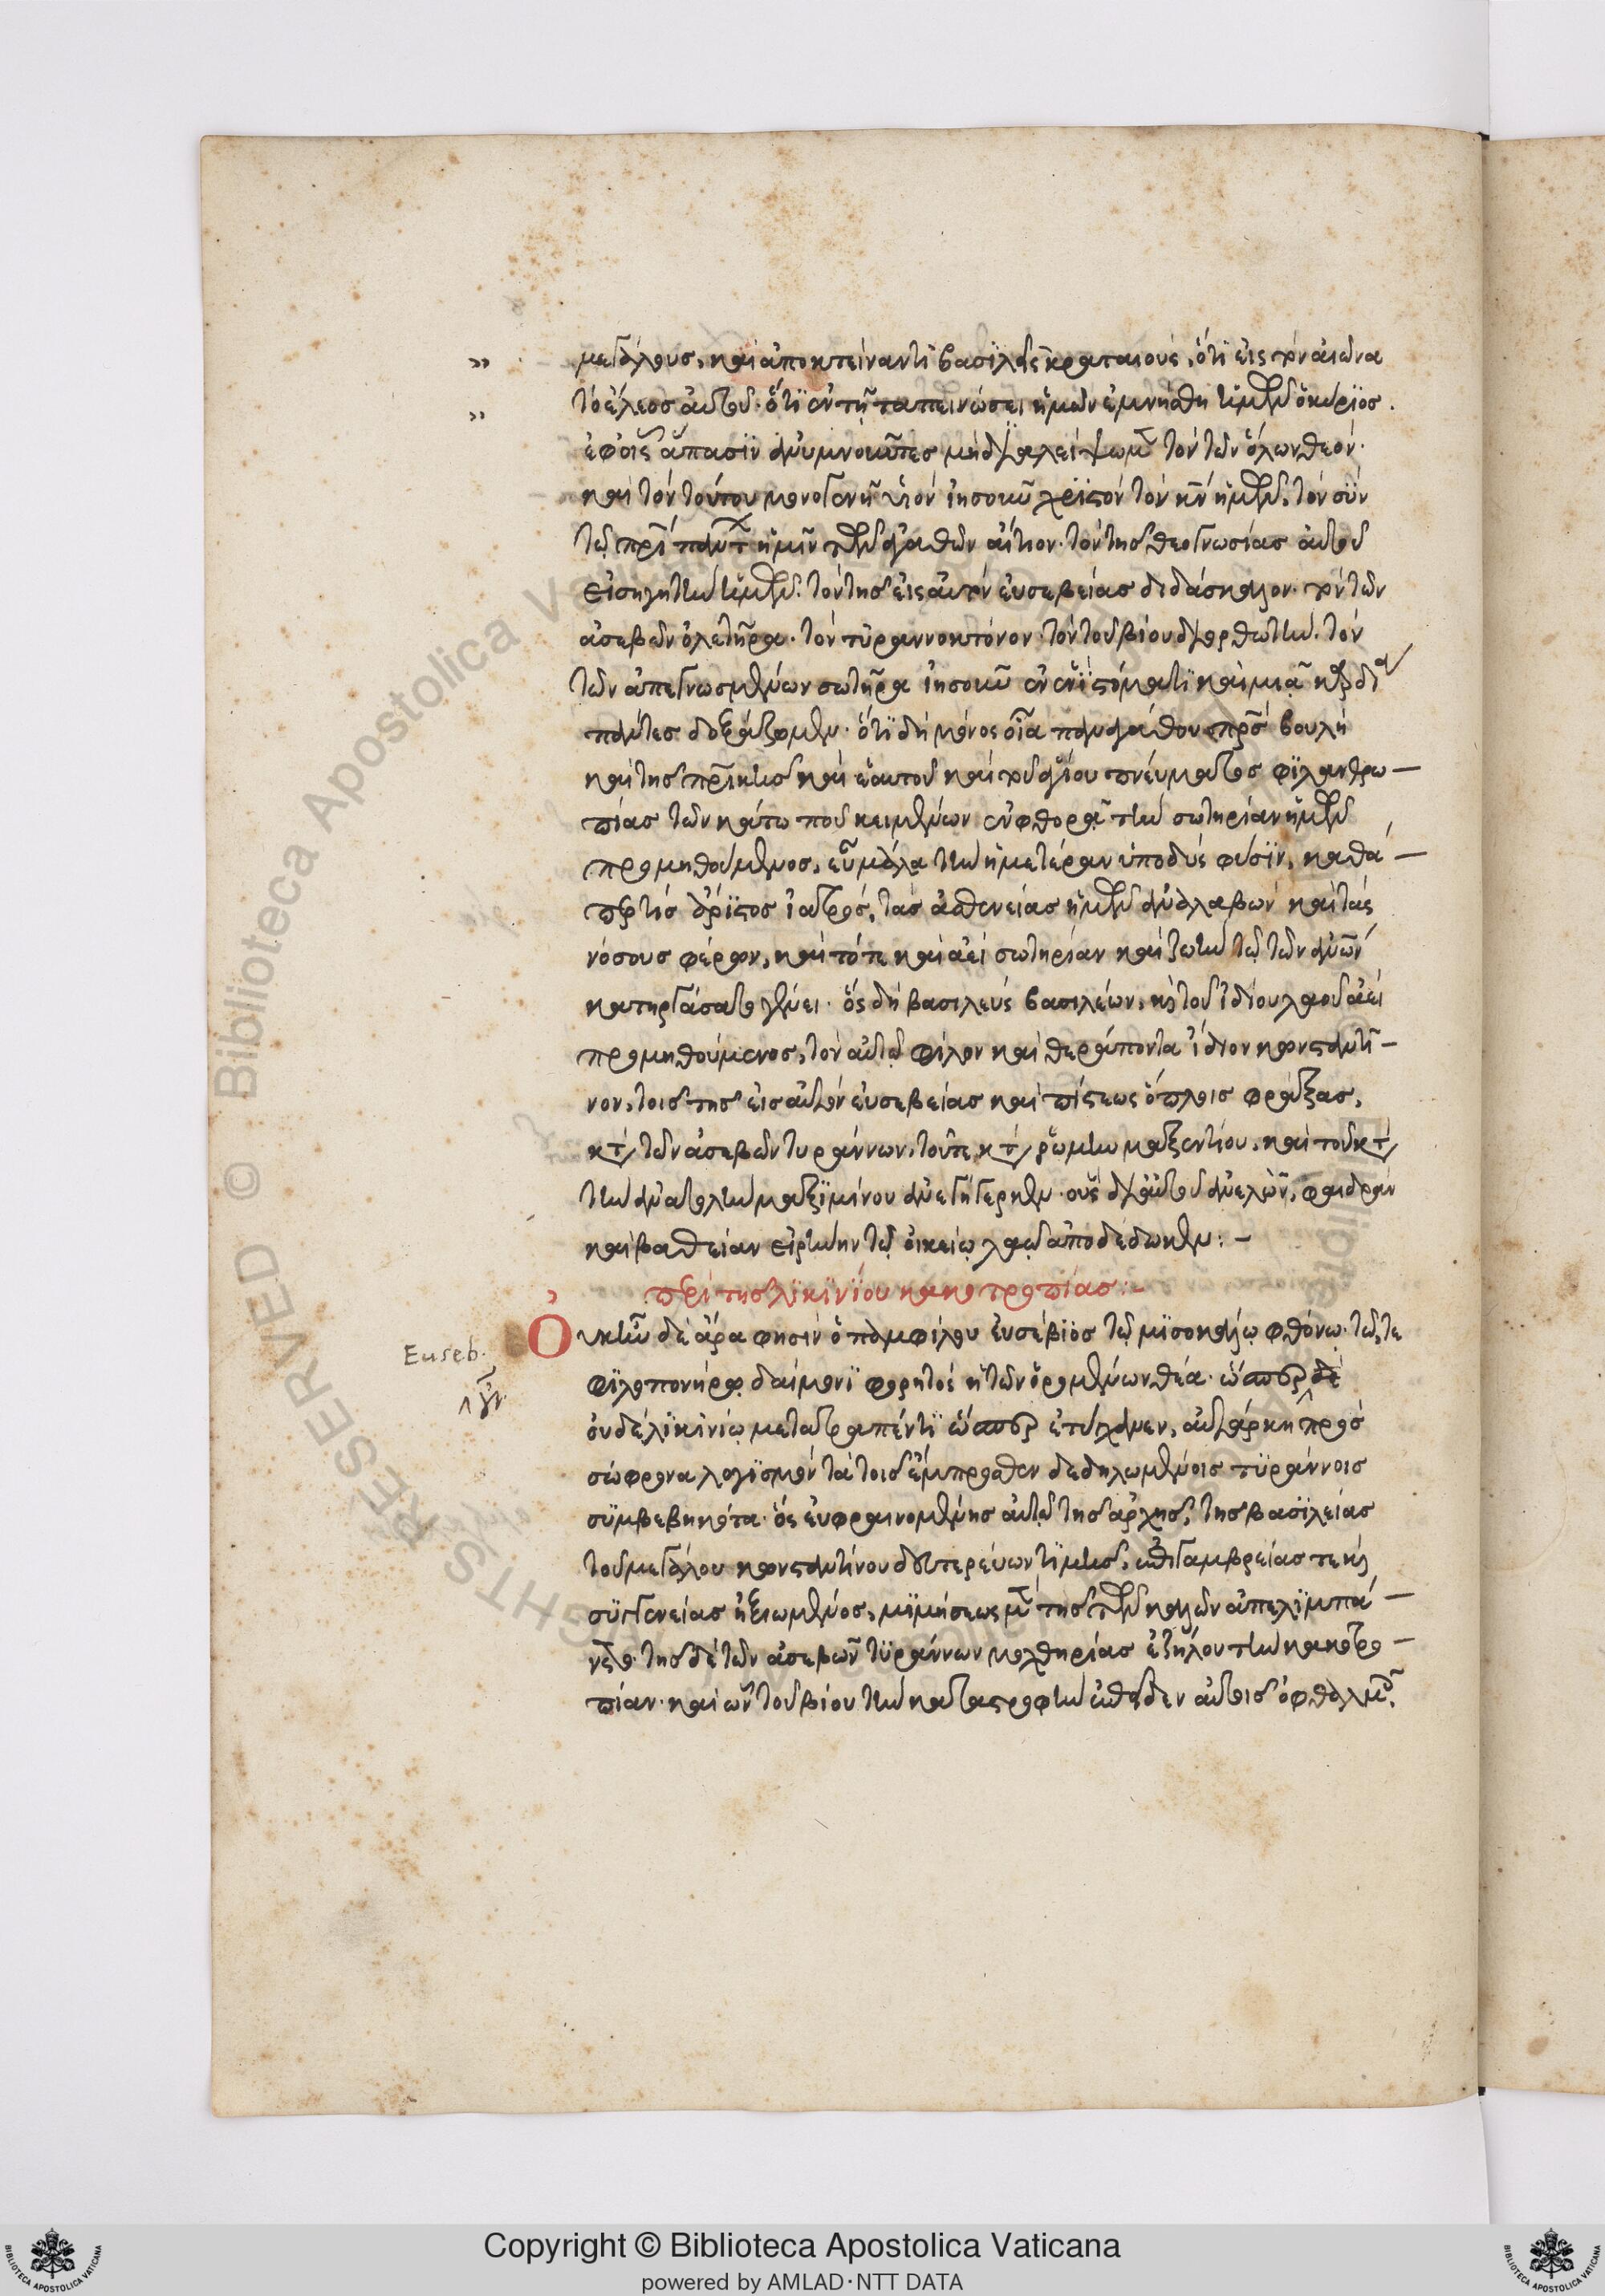 μεγάλους, καὶ ἀποκτείναντι βασιλεῖς κραταιοὺς, ὅτι εἰς τὸν αἰῶνα
τὸ ἔλεος αὐτοῦ. ὅτι ἐν τῇ ταπεινώσει ἡμῶν ἐμνήσθη ἡμῶν ὁ κύριος.
ἐφ οἷς ἅπασιν ἀνυμνοῦντες μὴ διαλείψωμεν τὸν τῶν ὅλων θεόν.
καὶ τὸν τούτου μονογενῆ υἱὸν ἰησοῦν χριστὸν τὸν κν ἡμῶν. τὸν σὺν
τῷ πρὶ πάντων ἡμῖν τῶν ἀγαθῶν αἴτιον. τὸν τῆς θεογνωσίας αὐτοῦ
εἰσηγητὴν ἡμῶν. τὸν τῆς εἰς αὐτὸν εὐσεβείας διδάσκαλον. τὸν τῶν
ἀσεβῶν ὀλετῆρα. τὸν τυραννοκτόνον. τὸν τοῦ βίου διορθωτὴν. τὸν
τῶν ἀπεγνωσμένων σωτῆρα ἰησοῦν ἐν ἑνὶ στόματι καὶ μιᾷ καρδία
πάντες δοξάζομεν. ὅτι δὴ μόνος οἷα παναγάθου πρσ βουλῇ
καὶ τῆς πρικῆς καὶ ἑαυτοῦ καὶ τοῦ ἁγίου πνεύματος φιλανθρω-
πίας τῶν κάτω που κειμένων ἐν φθορᾷ τὴν σωτηρίαν ἡμῶν
προμηθούμενος, εὖ μάλα τὴν ἡμετέραν ὑποδὺς φύσιν, καθά-
περ τίς ἄριστος ἰατρός, τὰς ἀσθενείας ἡμῶν ἀναλαβὼν καὶ τὰς
νόσους φέρων, καὶ τότε καὶ ἀεὶ σωτηρίαν καὶ ζωὴν τῷ τῶν ἀνων
κατηργάσατο γένει. ὃς δὴ βασιλεὺς βασιλέων, καὶ τοῦ ἰδίου λαοῦ ἀεὶ
προμηθούμενος, τὸν αὐτῷ φίλον καὶ θεράποντα ἴδιον κωνσταντῖ-
νον, τοῖς τῆς εἰς αὐτὸν εὐσεβείας καὶ πίστεως ὅπλοις φράξας,
κτ τῶν ἀσεβῶν τυράννων, τοῦτε κτ ῥώμην μαξεντίου, καὶ τοῦ κτ
τὴν ἀνατολὴν μαξιμίνου ἀνεγήγερκεν. οὓς δι αὐτοῦ ἀνελὼν, φαιδρὰν
καὶ βαθεῖαν εἰρήνην τῷ οἰκείῳ λαῷ ἀποδέδωκεν:-
περὶ τῆς λικινίου κακοτροπίας:-
Οὐκ ἦν δὲ ἄρα φησὶν ὁ παμφίλου εὐσέβιος τῷ μισοκάλῳ φθόνῳ. τῷ τε
Euseb.
φιλοπονήρῳ δαίμονι φορητὸς ἡ τῶν ὁρωμένων θέα. ὥσπερ δὲ
οὐδὲ λικινίῳ μετατραπέντι ὥσπερ ἐτύγχανεν, αὐτάρκη πρὸς
σώφρονα λογισμὸν τὰ τοῖς ἔμπροσθεν δεδηλωμένοις τυράννοις
συμβεβηκότα. ὃς εὐφραινομένης αὐτῷ τῆς ἀρχῆς, τῆς βασιλείας
τοῦ μεγάλου κωνσταντίνου δευτερεύων τιμῆς, ἐπιγαμβρείας τε καὶ
συγγενείας ἠξιωμένος, μιμήσεως μὲν τῆς τῶν καλῶν ἀπελιμπά-
νετο. τῆς δὲ τῶν ἀσεβῶν τυράννων μοχθηρίας ἐζήλου τὴν κακοτρο-
πίαν. καὶ ὧν τοῦ βίου τὴν καταστροφὴν ἐπεῖδεν αὐτοῖς ὀφθαλμοῖς
Copyright © Biblioteca Apostolica Vaticana
powered by AMLAD·NTT DATA